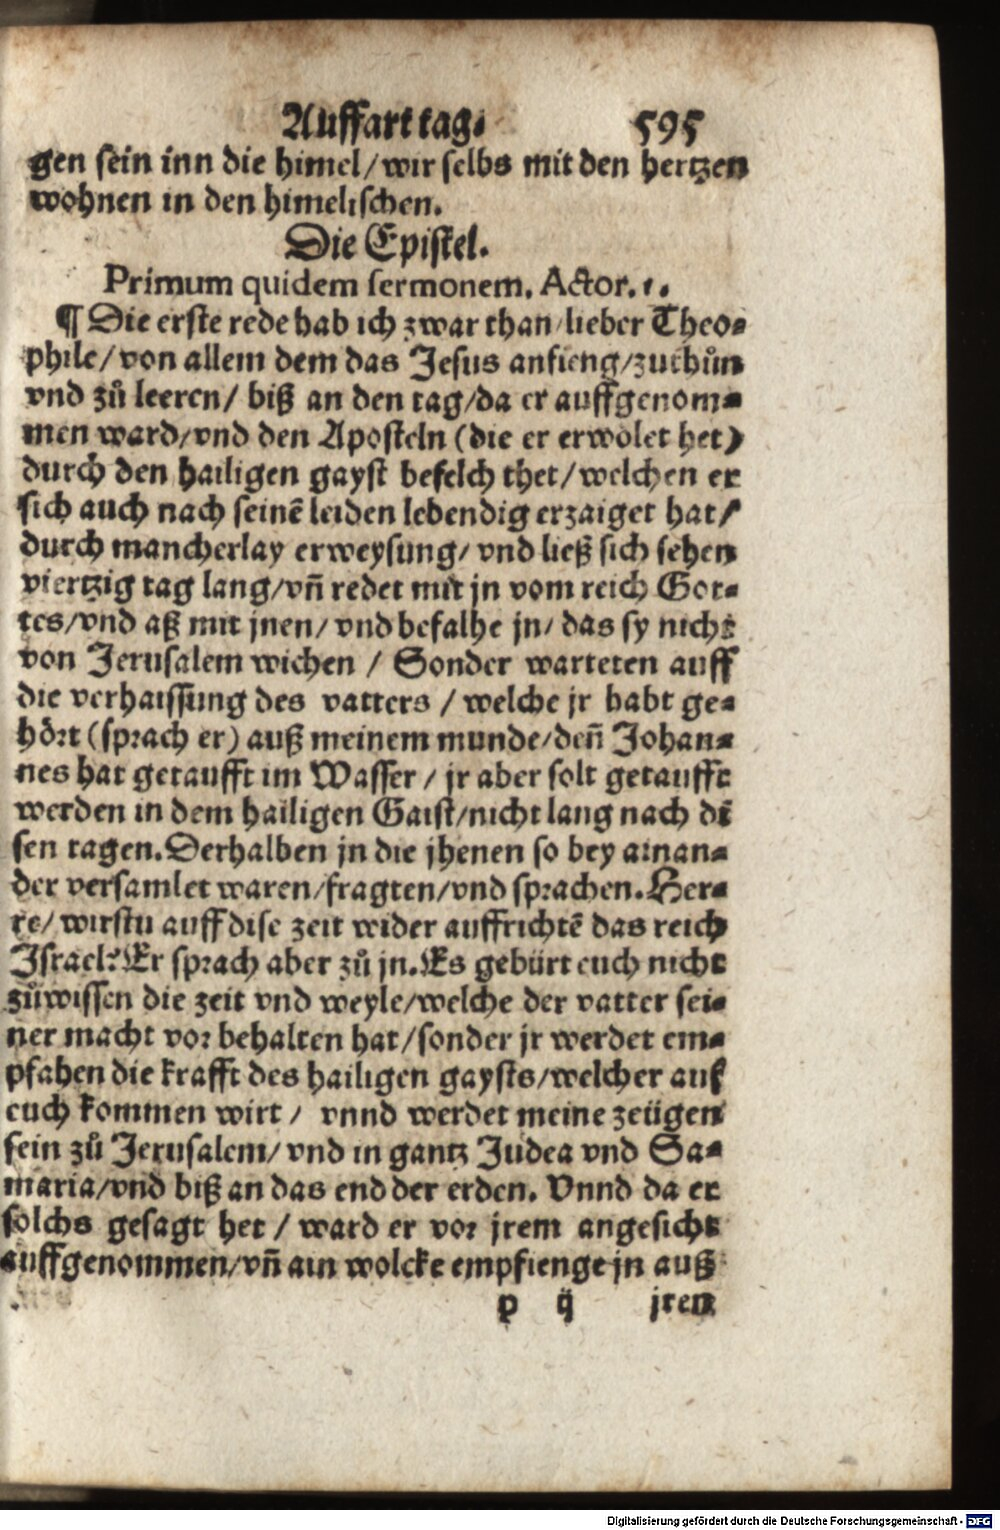 Auffart tag. 595
gen sein inn die himel/wir selbs mit den hertzen
wohnen in den himelischen.
Die Epistel.
Primum quidem sermonem. Actor. 1.
¶ Die erste rede hab ich zwar than/lieber Theo-
phile/von allem dem das Jesus anfieng/zuthůn
vnd zů leeren/ biß an den tag/da er auffgenom-
men ward/vnd den Aposteln (die er erwölet het)
durch den hailigen gayst befelch thet/welchen er
sich auch nach seinē leiden lebendig erzaiget hat/
durch mancherlay erweysung/ vnd ließ sich sehen
viertzig tag lang/vn̄ redet mit jn vom reich Got-
tes/vnd aß mit jnen/ vnd befalhe jn/ das sy nicht
von Jerusalem wichen / Sonder warteten auff
die verhaissung des vatters / welche jr habt ge-
hört (sprach er) auß meinem munde/den̄ Johan-
nes hat getaufft im Wasser / jr aber solt getaufft
werden in dem hailigen Gaist/nicht lang nach di
sen tagen. Derhalben jn die jhenen so bey ainan-
der versamlet waren/fragten/vnd sprachen. Her-
re/ wirstu auff dise zeit wider auffrichtē das reich
Israel? Er sprach aber zů jn. Es gebürt euch nicht
zůwissen die zeit vnd weyle/welche der vatter sei-
ner macht vor behalten hat/sonder jr werdet em-
pfahen die krafft des hailigen gaysts/welcher auf
euch kommen wirt / vnnd werdet meine zeügen
sein zů Jerusalem/ vnd in gantz Judea vnd Sa-
maria/vnd biß an das end der erden. Vnnd da er
solchs gesagt het / ward er vor jrem angesicht
auffgenommen/vn̄ ain wolcke empfienge jn auß
p ij jren
Digitalisierung gefördert durch die Deutsche Forschungsgemeinschaft - DFG